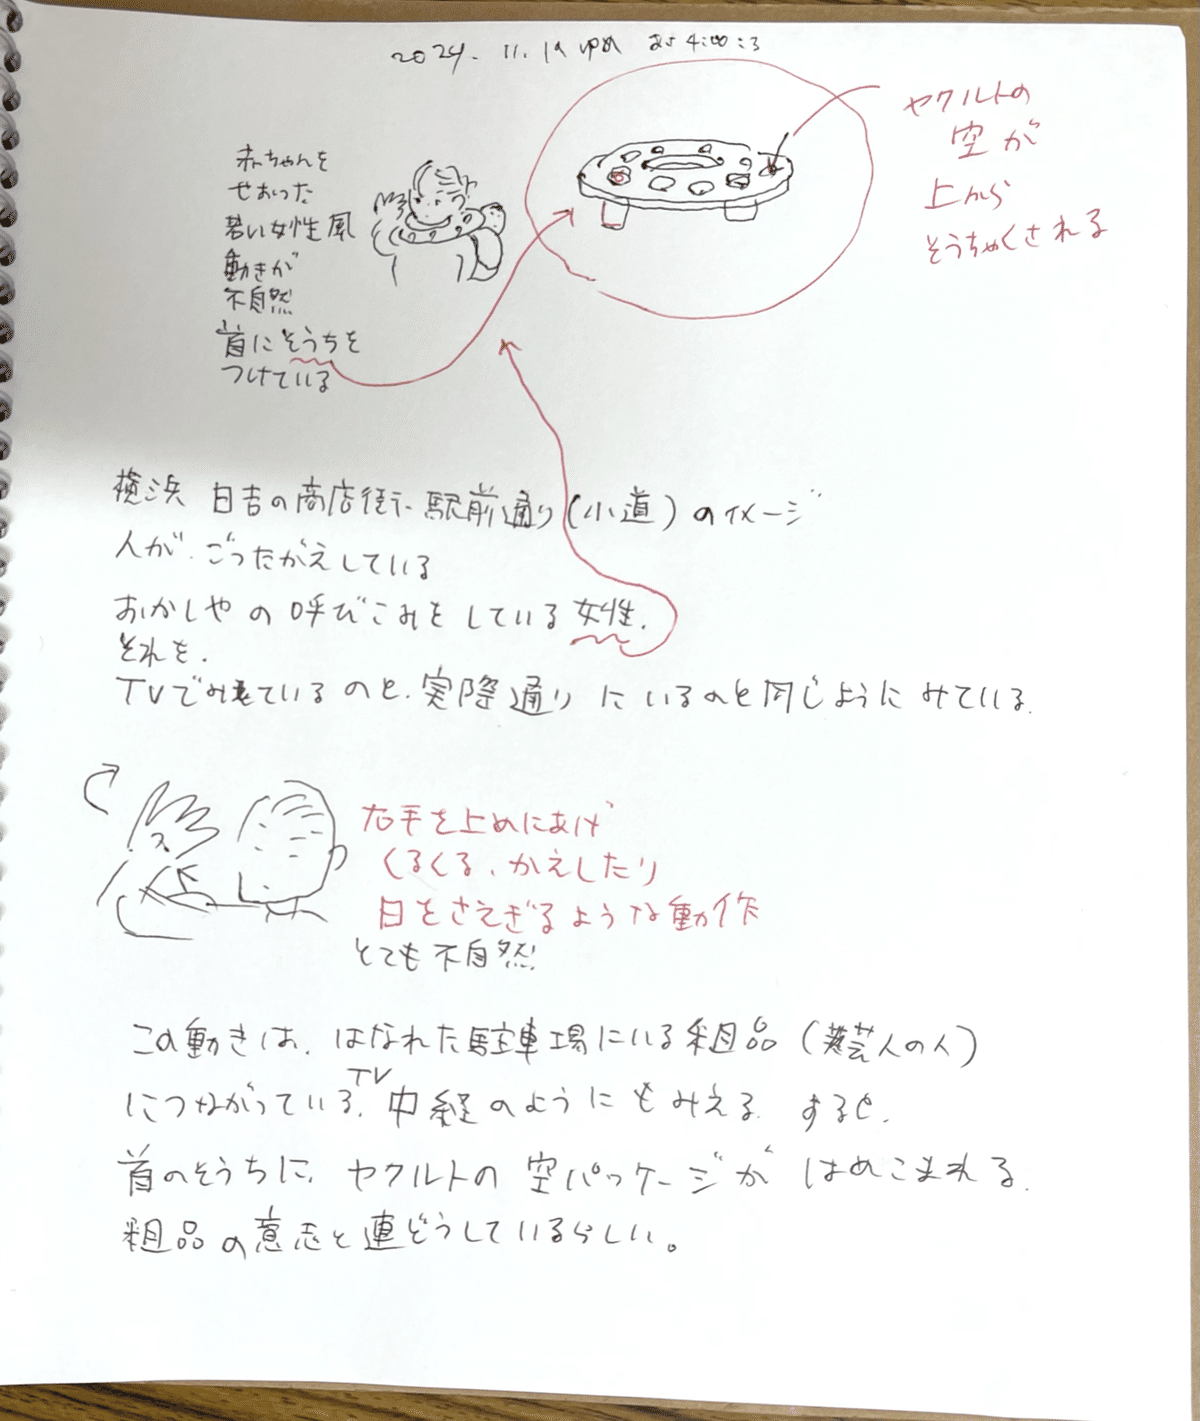 2024. 11. 19 ゆめ あさ 4:00ころ
赤ちゃんを
せおった
若い女性風
動きが
不自然
首にそうちを
つけている
ヤクルトの
空が
上から
そうちゃくされる
横浜 日吉の商店街 駅前通り(小道)のイメージ
人が、ごったがえしている
おかしやの呼びこみをしている女性.
それを.
TVでみているのと、実際通りにいるのと同じようにみている.
右手を上めにあげ
くるくる、かえしたり
日をさえぎるような動作
とても不自然!
この動きは、はなれた駐車場にいる粗品(芸人の人)
につながっている、TV中継のようにもみえる. すると、
首のそうちに、ヤクルトの空パッケージがはめこまれる.
粗品の意志と連どうしているらしい。